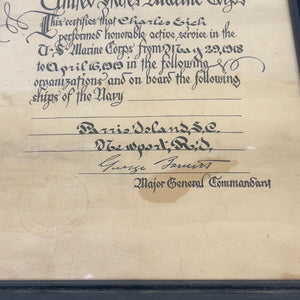 United States Marine Corps
This certifies that Charles Sich
performed honorable active service in the
U.S. Marine Corps from May 29, 1918
to April 16, 1919 in the following
organizations and on board the following
ships of the Navy
Parris Island, S.C.
Newport, R.I.
George Barnett
Major General Commandant